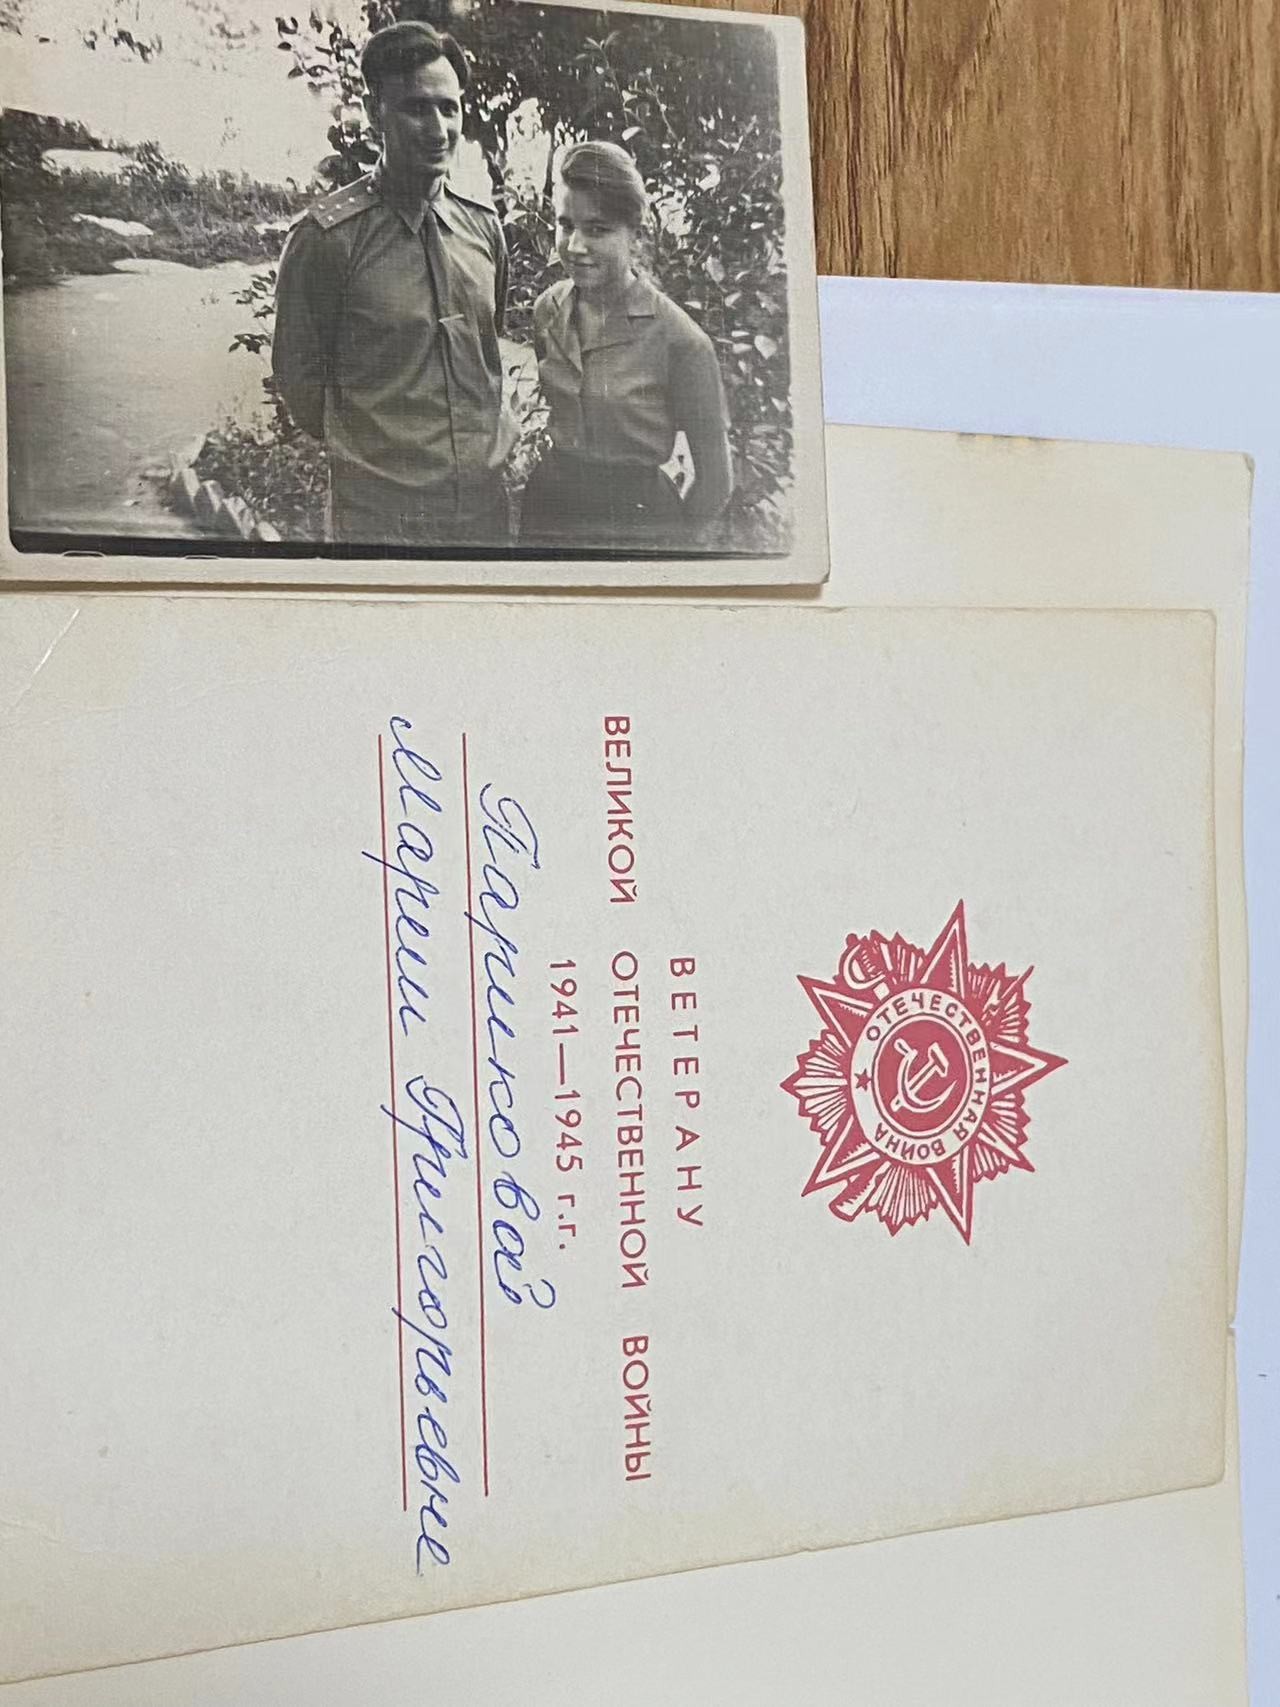 ОТЕЧЕСТВЕННАЯ ВОЙНА
ВЕТЕРАНУ
ВЕЛИКОЙ ОТЕЧЕСТВЕННОЙ ВОЙНЫ
1941—1945 г.г.
Париковой
Марии Григорьевне